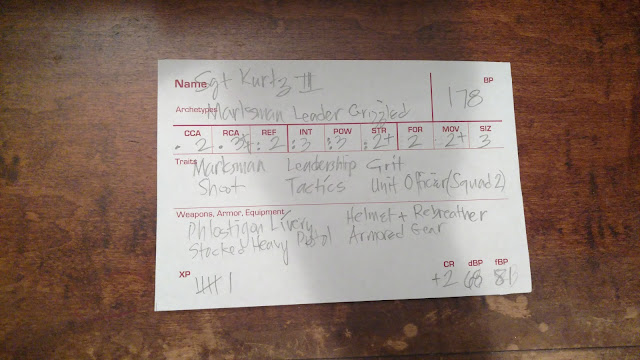 Name Sgt Kurtz II
BP 178
Archetypes Marksman Leader Grizzled
CCA RCA REF INT POW STR FOR MOV SIZ
. 2 . 3+ : 2 : 3 : 3 : 2+ 2 2+ 3
Traits Marksman Leadership Grit
Shoot Tactics Unit Officier (Squad 2)
Weapons, Armor, Equipment
Phlostigon Livery Helmet + Rebreather
Stocked Heavy Pistol Armored Gear
XP CR dBP fBP
+2 68